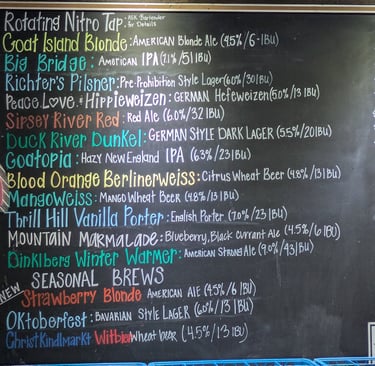 Rotating Nitro Tap: Ask Bartender for Details
Goat Island Blonde: American Blonde Ale (4.5%/6-IBU)
Big Bridge: American IPA (7.1%/51 IBU)
Richter's Pilsner: Pre-Prohibition Style Lager (6.0%/30 IBU)
Peace, Love & Hippieweizen: German Hefeweizen (5.0%/13 IBU)
Sipsey River Red: Red Ale (6.0%/32 IBU)
Duck River Dunkel: German Style Dark Lager (5.5%/20 IBU)
Goatopia: Hazy New England IPA (6.3%/23 IBU)
Blood Orange Berlinerweiss: Citrus Wheat Beer (4.8%/13 IBU)
MangoWeiss: Mango Wheat Beer (4.8%/13 IBU)
Thrill Hill Vanilla Porter: English Porter (7.0%/23 IBU)
Mountain Marmalade: Blueberry, Black Currant Ale (4.5%/6 IBU)
Dinklberg Winter Warmer: American Strong Ale (9.0%/43 IBU)
SEASONAL BREWS
NEW Strawberry Blonde American Ale (4.5%/6 IBU)
Oktoberfest: Bavarian Style Lager (6.0%/13 IBU)
Christkindlmarkt Witbier Wheat beer (4.5%/13 IBU)